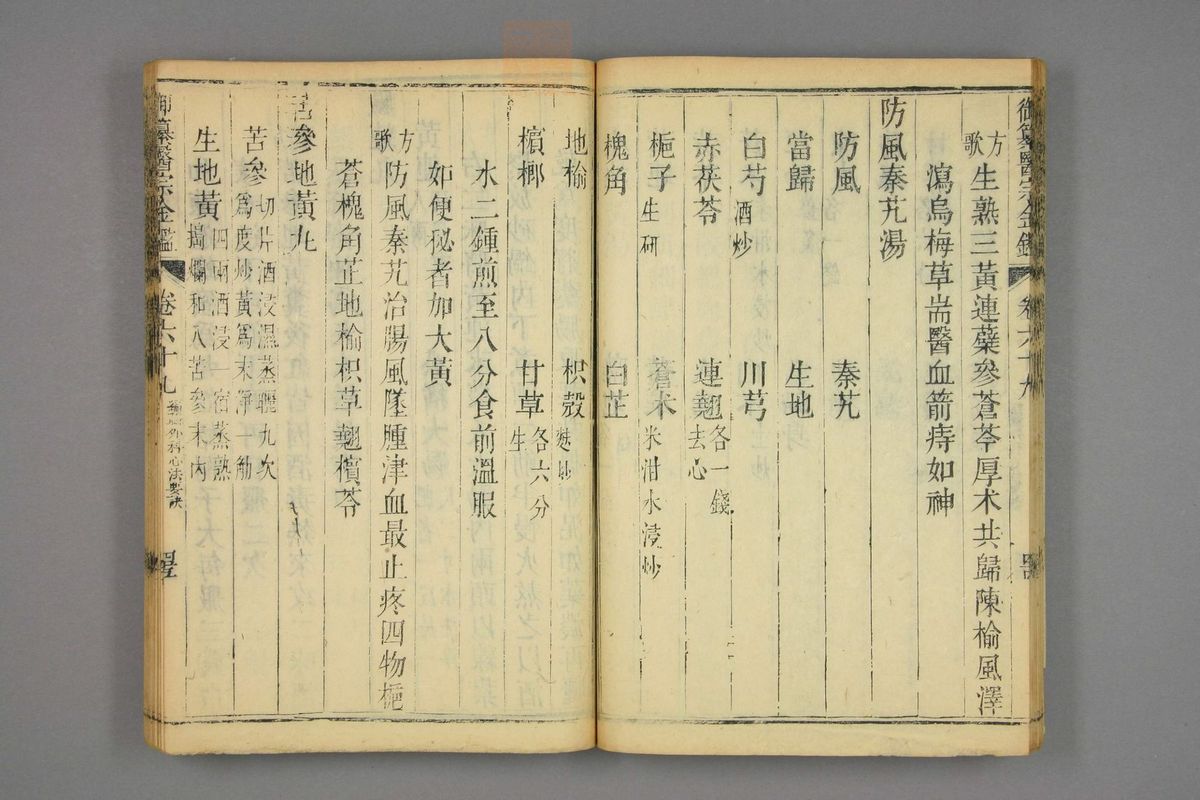 御纂醫宗金鑑 卷六十九
方歌 生熟三黃連蘗參蒼芩厚朮共歸陳榆風澤
瀉烏梅草耑醫血箭痔如神
防風秦艽湯
防風 秦艽
當歸 生地
白芍 酒炒 川芎
赤茯苓 連翹 去心 各一錢
梔子 生研 蒼朮 米泔水浸炒
槐角 白芷
地榆 枳殼 麩炒
檳榔 甘草 生 各六分
水二鍾煎至八分食前溫服
如便秘者加大黃
方歌 防風秦艽治腸風墜腫津血最止疼四物梔
蒼槐角芷地榆枳草翹檳苓
苦參地黃丸
苦參 切片酒浸濕蒸曬九次爲度炒黃爲末淨一觔
生地黃 四兩酒浸一宿蒸熟搗爛和入苦參末內
御纂醫宗金鑑 卷六十九 編輯外科心法要訣